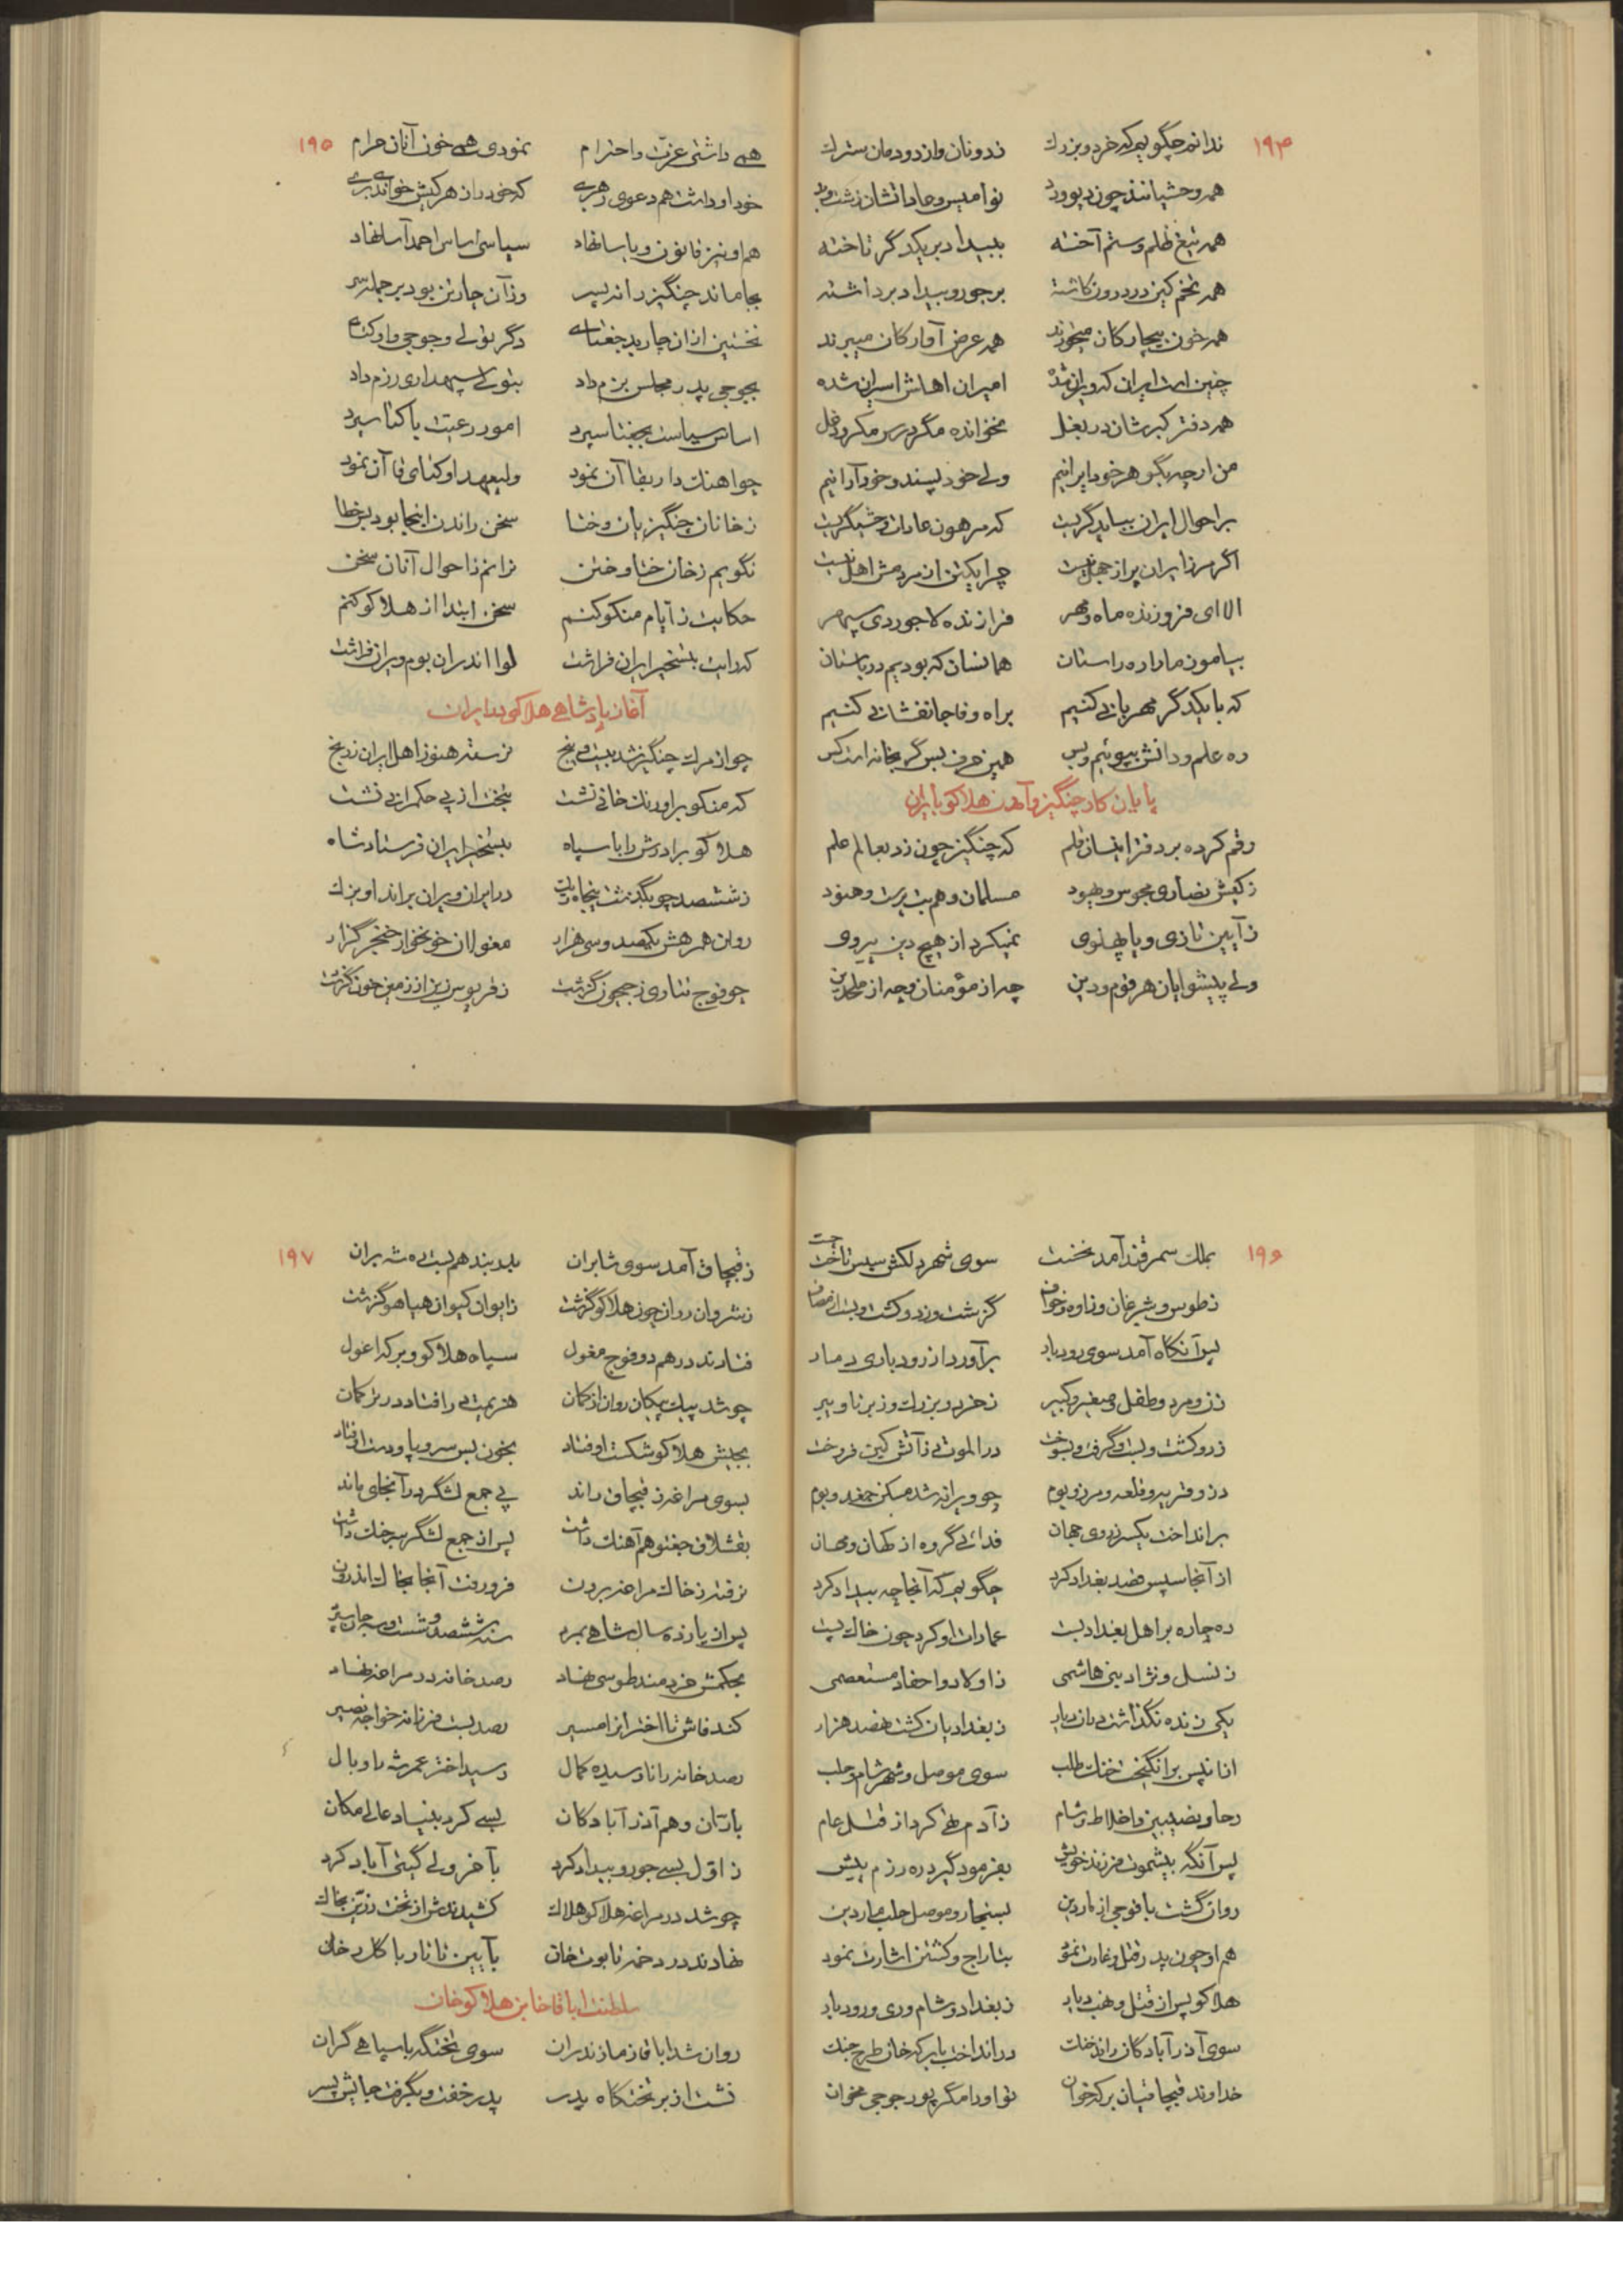 ۱۹۴
ندانم چگویم که خرد و بزرگ زدونان و از دودمان سترگ
همه وحشیانند چون دیو و دد نوامیس و عاداتشان زشت و بد
همه تیغ ظلم و ستم آخته ببیداد بر یکدگر تاخته
همه تخم کین در درون کاشته بر جور و بیداد برداشته
همه خون بیچارکان میخورند همه عرض آوارکان میبرند
چنین است ایران که ویران شده امیران اهلش اسیران شده
همه دفتر کبرشان در بغل نخوانده مگر درس مکر و دغل
من ارچه بگوهر خود ایرانیم ولی خود پسند و خود آرا نیم
بر احوال ایران بباید گریست که مرهون عادات وحشیگریست
اگر مرز ایران پر از جهل نیست چرا یکتن از مردمش اهل نیست
الا ای فروزنده ماه و مهر فرازنده لاجوردی سپهر
بیامون مارا ره راستان همانسان که بودیم در باستان
که با یکدگر مهربانی کنیم براه وفا جانفشانی کنیم
ره علم و دانش بپوئیم و بس همین حرف بس گر بخانه است کس
پایان کار چنگیز و آمدن هلاکو بایران
رقم کرده بر دفتر اینسان قلم که چنگیز چون زد بعالم علم
ز کیش نصاری مجوس و یهود مسلمان و هم بت پرست و هنود
ز آیین تازی و یا پهلوی نمیکرد از هیچ دین پیروی
ولی پیشوایان هر قوم و دین چه از مؤمنان و چه از ملحدین
۱۹۵
همی داشتی عزت و احترام نمودی همی خون آنان حرام
خود او داشت هم دعوی رهبری که خود را ز هر کیش خواندی بری
هم او نیز قانون و یاسا نهاد سیاسی اساس احمد آسا نهاد
بجا ماند چنگیز را نه پسر وز آن چار تن بود بر جمله سر
نخستین از آن چار بد جغتای دگر تولی و جوجی و اوکتای
بجوجی پدر مجلس بزم داد بتولی سپهداری رزم داد
اساس سیاست بجغتا سپرد امور رعیت باکتا سپرد
چو اهنگ دار بقا آن نمود ولیعهد اوکتای قاآن نمود
ز خانان چنگیزیان و ختا سخن راندن اینجا بود بس خطا
نگویم ز خان ختا و ختن نرانم ز احوال آنان سخن
حکایت ز ایام منکو کنم سخن ابتدا از هلاکو کنم
که رایت بتسخیر ایران فراشت لوا اندران بوم ویران فراشت
آغاز پادشاهی هلاکو بایران
چو از مرک چنگیز شد بیست و پنج نرسته هنوز اهل ایران ز رنج
که منکو بر اورنک خانی نشست بتخت از پی حکمرانی نشست
هلاکو برادرش را با سپاه بتسخیر ایران فرستاد شاه
ز ششصد چو بگذشت پنجاه و یک در ایران ویران براند او یزک
روان همرهش یکصد و سی هزار مغولان خونخوار خنجر گزار
چو فوج تتاری ز جیحون گذشت ز قربوس زین از زمین خون گذشت
۱۹۶
بملک سمرقند آمد نخست سوی شهر دلکش سپس تاخت جست
ز طوس و شیرغان و زاوه و خواف گزشت و زد و کشت و بست از مصاف
پس آنگاه آمد سوی رودبار برآورد از رودباری دمار
زن و مرد و طفل و صغیر و کبیر ز خرد و بزرک و ز برنا و پیر
زد و کشت و بست و گرفت و بسوخت در الموت ز آتش کین فروخت
دز و قریه و قلعه و مرز و بوم چو ویرانه شد مسکن جغد و بوم
بر انداخت یکسر ز روی جهان فدائی گروه از کهان و مهان
از آنجا سپس قصد بغداد کرد چگویم که آنجا چه بیداد کرد
ره چاره بر اهل بغداد بست عمارات او کرد چون خاک پست
ز نسل و نژاد بنی هاشمی ز اولاد و احفاد مستعصمی
یکی زنده نگذاشت در آن دیار ز بغدادیان کشت هفصد هزار
ازانپس برانگیخت خنک طلب سوی موصل و شهر شام و حلب
رحا و نصیبین و اخلاط و شام ز آدم تهی کرد از قتل عام
پس آنگه بیشموت فرزند خویش بفرمود گیرد ره رزم پیش
روان گشت با فوجی از ماردین بسنجار و موصل حلب ماردین
هم او چون پدر قتل و غارت نمود بتاراج و کشتن اشارت نمود
هلاکو پس از قتل و نهب دیار ز بغداد و شام و ری و رودبار
سوی آذرآبادکان راند خنک در انداخت با برکه خان طرح جنک
خداوند قبچاقیان برکه خوان تو اورا مگر پور جوجی مخوان
۱۹۷
ز قبچاق آمد سوی شابران بدربند هم بست ره شه بر ان
ز شروان روان چون هلاکو گزشت ز ایوان کیوان هیاهو گزشت
فتادند در هم دو فوج مغول سپاه هلاکو و برکه اغول
چو شد پیک پیکان روان از کمان هزیمت در افتاد در ترکمان
بجیش هلاکو شکست اوفتاد بخون بس سر و پا و دست اوفتاد
بسوی مراغه ز قبچاق راند پی جمع لشگر در آنجای ماند
بقشلاق جغتو هم آهنک داشت پس از جمع لشگر سر جنک داشت
نرفته ز خاک مراغه برون فرو رفت آنجا بخاک اندرون
پس از یازده سال شاهی بمرد سنه ششصد و شست و سه جان سپرد
بحکمش خردمند طوسی نهاد رصد خانه در مراغه نهاد
کند فاش تا اختران را مسیر رصد بست فرزانه خواجه نصیر
رصد خانه را نارسیده کمال رسید اختر عمر شه با وبال
باران و هم آذرآبادکان بسی کرد بنیاد عالی مکان
ز اول بسی جور و بیداد کرد بآخر ولی گیتی آباد کرد
چو شد در مراغه هلاکو هلاک کشیدندش از تخت زرین بخاک
نهادند در دخمه تابوت خان بآیین تاتار با کلرخان
سلطنت اباقاخان بن هلاکو خان
روان شد اباقا ز مازندران سوی تختگه با سپاهی گران
نشست از بر تختکاه پدر پدر خفت و بگرفت جایش پسر